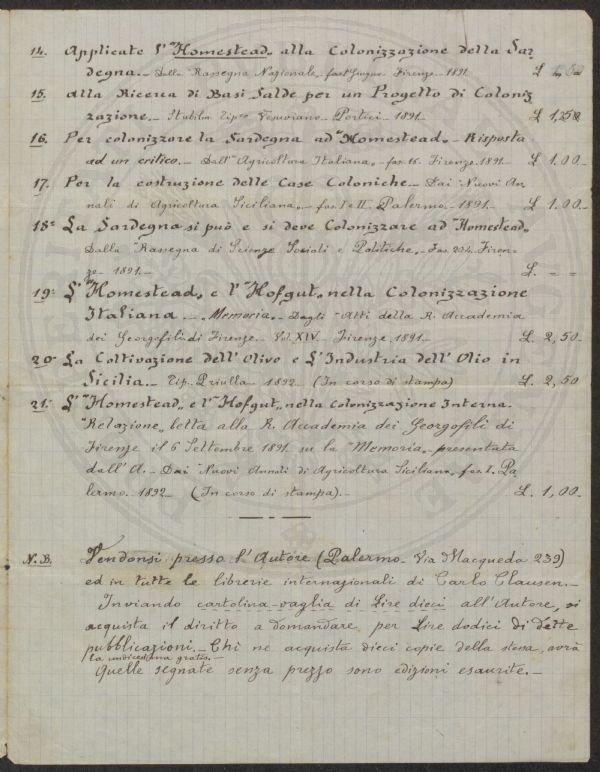 14. Applicate l'"Homestead" alla Colonizzazione della Sar-
degna.- Dalla "Rassegna Nazionale" fasc. Giugno. Firenze. 1891. £
15. Alla Ricerca di Basi Salde per un Progetto di Coloniz
zazione.- Stabilim. Tipco Vesuviano - Portici - 1891. £ 1,250.
16. Per colonizzare la Sardegna ad "Homestead" - Risposta
ad un critico.- Dall'"Agricoltura Italiana" - fas. 16. Firenze. 1891 - £ 1.00.-
17. Per la costruzione delle Case Coloniche - Dai "Nuovi An-
nali di Agricoltura Siciliana" - fas. I e II. Palermo. 1891. £ 1.00.-
18= La Sardegna si può e si deve Colonizzare ad "Homestead"
Dalla "Rassegna di Scienze Sociali e Politiche" - Fas. 204. Firen-
ze - 1891.- £. - =
19: L'"Homestead" e l'"Hofgut" nella Colonizzazione
Italiana.- "Memoria" - Dagli "Atti della R. Accademia
dei Georgofili di Firenze. Vol. XIV. Firenze. 1891.- £. 2,50.
20- La Coltivazione dell'Olivo e L'Industria dell'Olio in
Sicilia.- Tip. Priulla 1892 - (In corso di stampa) £. 2,50
21: L'"Homestead" e l'"Hofgut" nella Colonizzazione Interna.
"Relazione" letta alla R. Accademia dei Georgofili di
Firenze il 6 Settembre 1891 su la "Memoria" presentata
dall'A.- Dai "Nuovi Annali di Agricoltura Siciliana" fas. I. Pa
lermo. 1892 - (In corso di stampa).- £. 1,00-
N.B. Vendonsi presso l'Autore (Palermo - Via Macqueda 239)
ed in tutte le librerie internazionali di Carlo Clausen.-
Inviando cartolina-vaglia di Lire dieci all'Autore, si
acquista il diritto a domandare per Lire dodici di dette
pubblicazioni.- Chi ne acquista dieci copie della stessa, avrà
la undicesima gratis.-
Quelle segnate senza prezzo sono edizioni esaurite.-